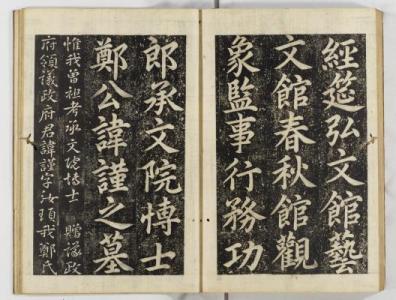 經筵弘文館藝
文館春秋館觀
象監事行務功
郎承文院博士
鄭公諱謹之墓
惟我曾祖考承文院博士 贈議政
府領議政府君諱謹字汝頊我鄭氏